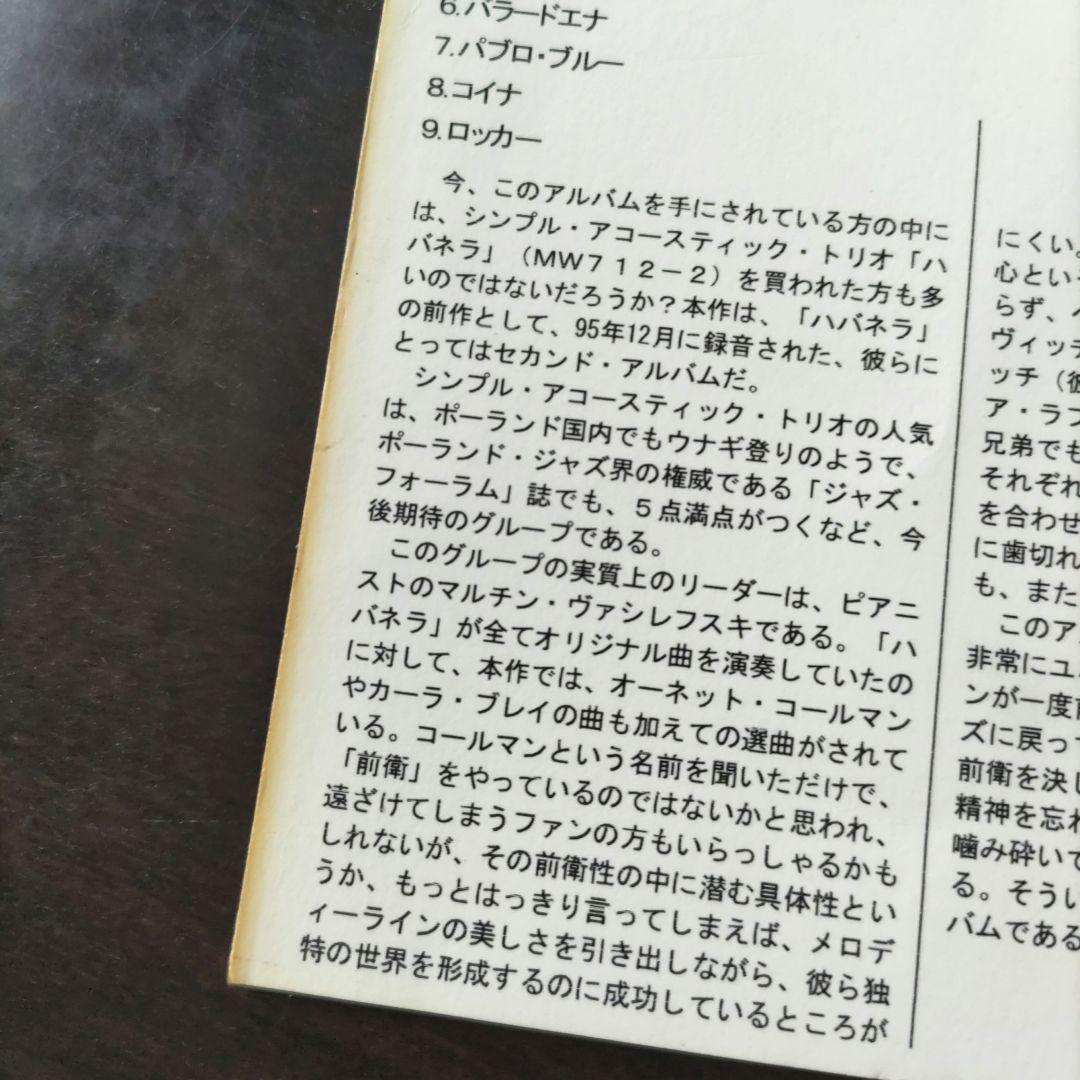 6.バラードエナ
7.パブロ・ブルー
8.コイナ
9.ロッカー
今、このアルバムを手にされている方の中に
は、シンプル・アコースティック・トリオ「ハ
バネラ」（MW７１２－２）を買われた方も多
いのではないだろうか？本作は、「ハバネラ」
の前作として、95年12月に録音された、彼らに
とってはセカンド・アルバムだ。
シンプル・アコースティック・トリオの人気
は、ポーランド国内でもウナギ登りのようで、
ポーランド・ジャズ界の権威である「ジャズ・
フォーラム」誌でも、５点満点がつくなど、今
後期待のグループである。
このグループの実質上のリーダーは、ピアニ
ストのマルチン・ヴァシレフスキである。「ハ
バネラ」が全てオリジナル曲を演奏していたの
に対して、本作では、オーネット・コールマン
やカーラ・ブレイの曲も加えての選曲がされて
いる。コールマンという名前を聞いただけで、
「前衛」をやっているのではないかと思われ、
遠ざけてしまうファンの方もいらっしゃるかも
しれないが、その前衛性の中に潜む具体性とい
うか、もっとはっきり言ってしまえば、メロデ
ィーラインの美しさを引き出しながら、彼ら独
特の世界を形成するのに成功しているところが
にくい。
心とい
らず、
ヴィッチ
ッチ（彼
ア・ラフ
兄弟でも
それぞれ
を合わせ
に歯切れ
も、また
このア
非常にユ
ンが一度前
ズに戻って
前衛を決し
精神を忘れ
噛み砕いて
る。そうい
バムである